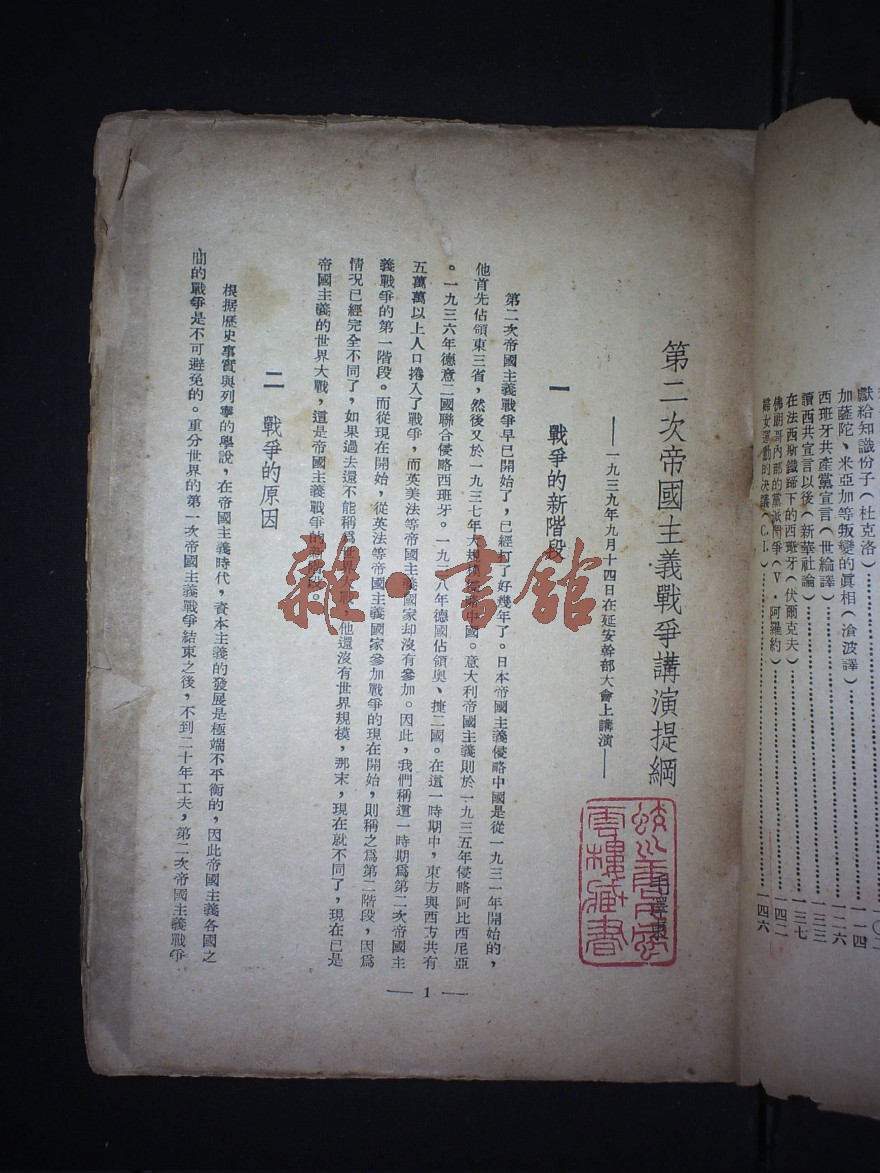 獻給知識份子(杜克洛)……一〇二
加薩陀、米亞加等叛變的眞相(滄波譯)……一一四
西班牙共產黨宣言(世綸譯)……一二六
讀西共宣言以後(新華社論)……一三三
在法西斯鐵蹄下的西班牙(伏爾克夫)……一三七
佛朗哥內部的黨派鬥爭(V・阿羅約)……一四二
婦女運動的決議(C.I.)……一四六
第二次帝國主義戰爭講演提綱
——一九三九年九月十四日在延安幹部大會上講演——
毛澤東
一 戰爭的新階段
第二次帝國主義戰爭早已開始了,已經打了好幾年了。日本帝國主義侵略中國是從一九三一年開始的,
他首先佔領東三省,然後又於一九三七年大規模侵略中國。意大利帝國主義則於一九三五年侵略阿比西尼亞
。一九三六年德意二國聯合侵略西班牙。一九三八年德國佔領奧、捷二國。在這一時期中,東方與西方共有
五萬萬以上人口捲入了戰爭,而英美法等帝國主義國家却沒有參加。因此,我們稱這一時期爲第二次帝國主
義戰爭的第一階段。而從現在開始,從英法等帝國主義國家參加戰爭的現在開始,則稱之爲第二階段,因爲
情况已經完全不同了,如果過去還不能稱爲世界大戰,他還沒有世界規模,那末,現在就不同了,現在已是
帝國主義的世界大戰,這是帝國主義戰爭的新階段。
二 戰爭的原因
根据歷史事實與列寧的學說,在帝國主義時代,資本主義的發展是極端不平衡的,因此帝國主義各國之
間的戰爭是不可避免的。重分世界的第一次帝國主義戰爭結束之後,不到二十年工夫,第二次帝國主義戰爭
— 1 —
雜·書舘